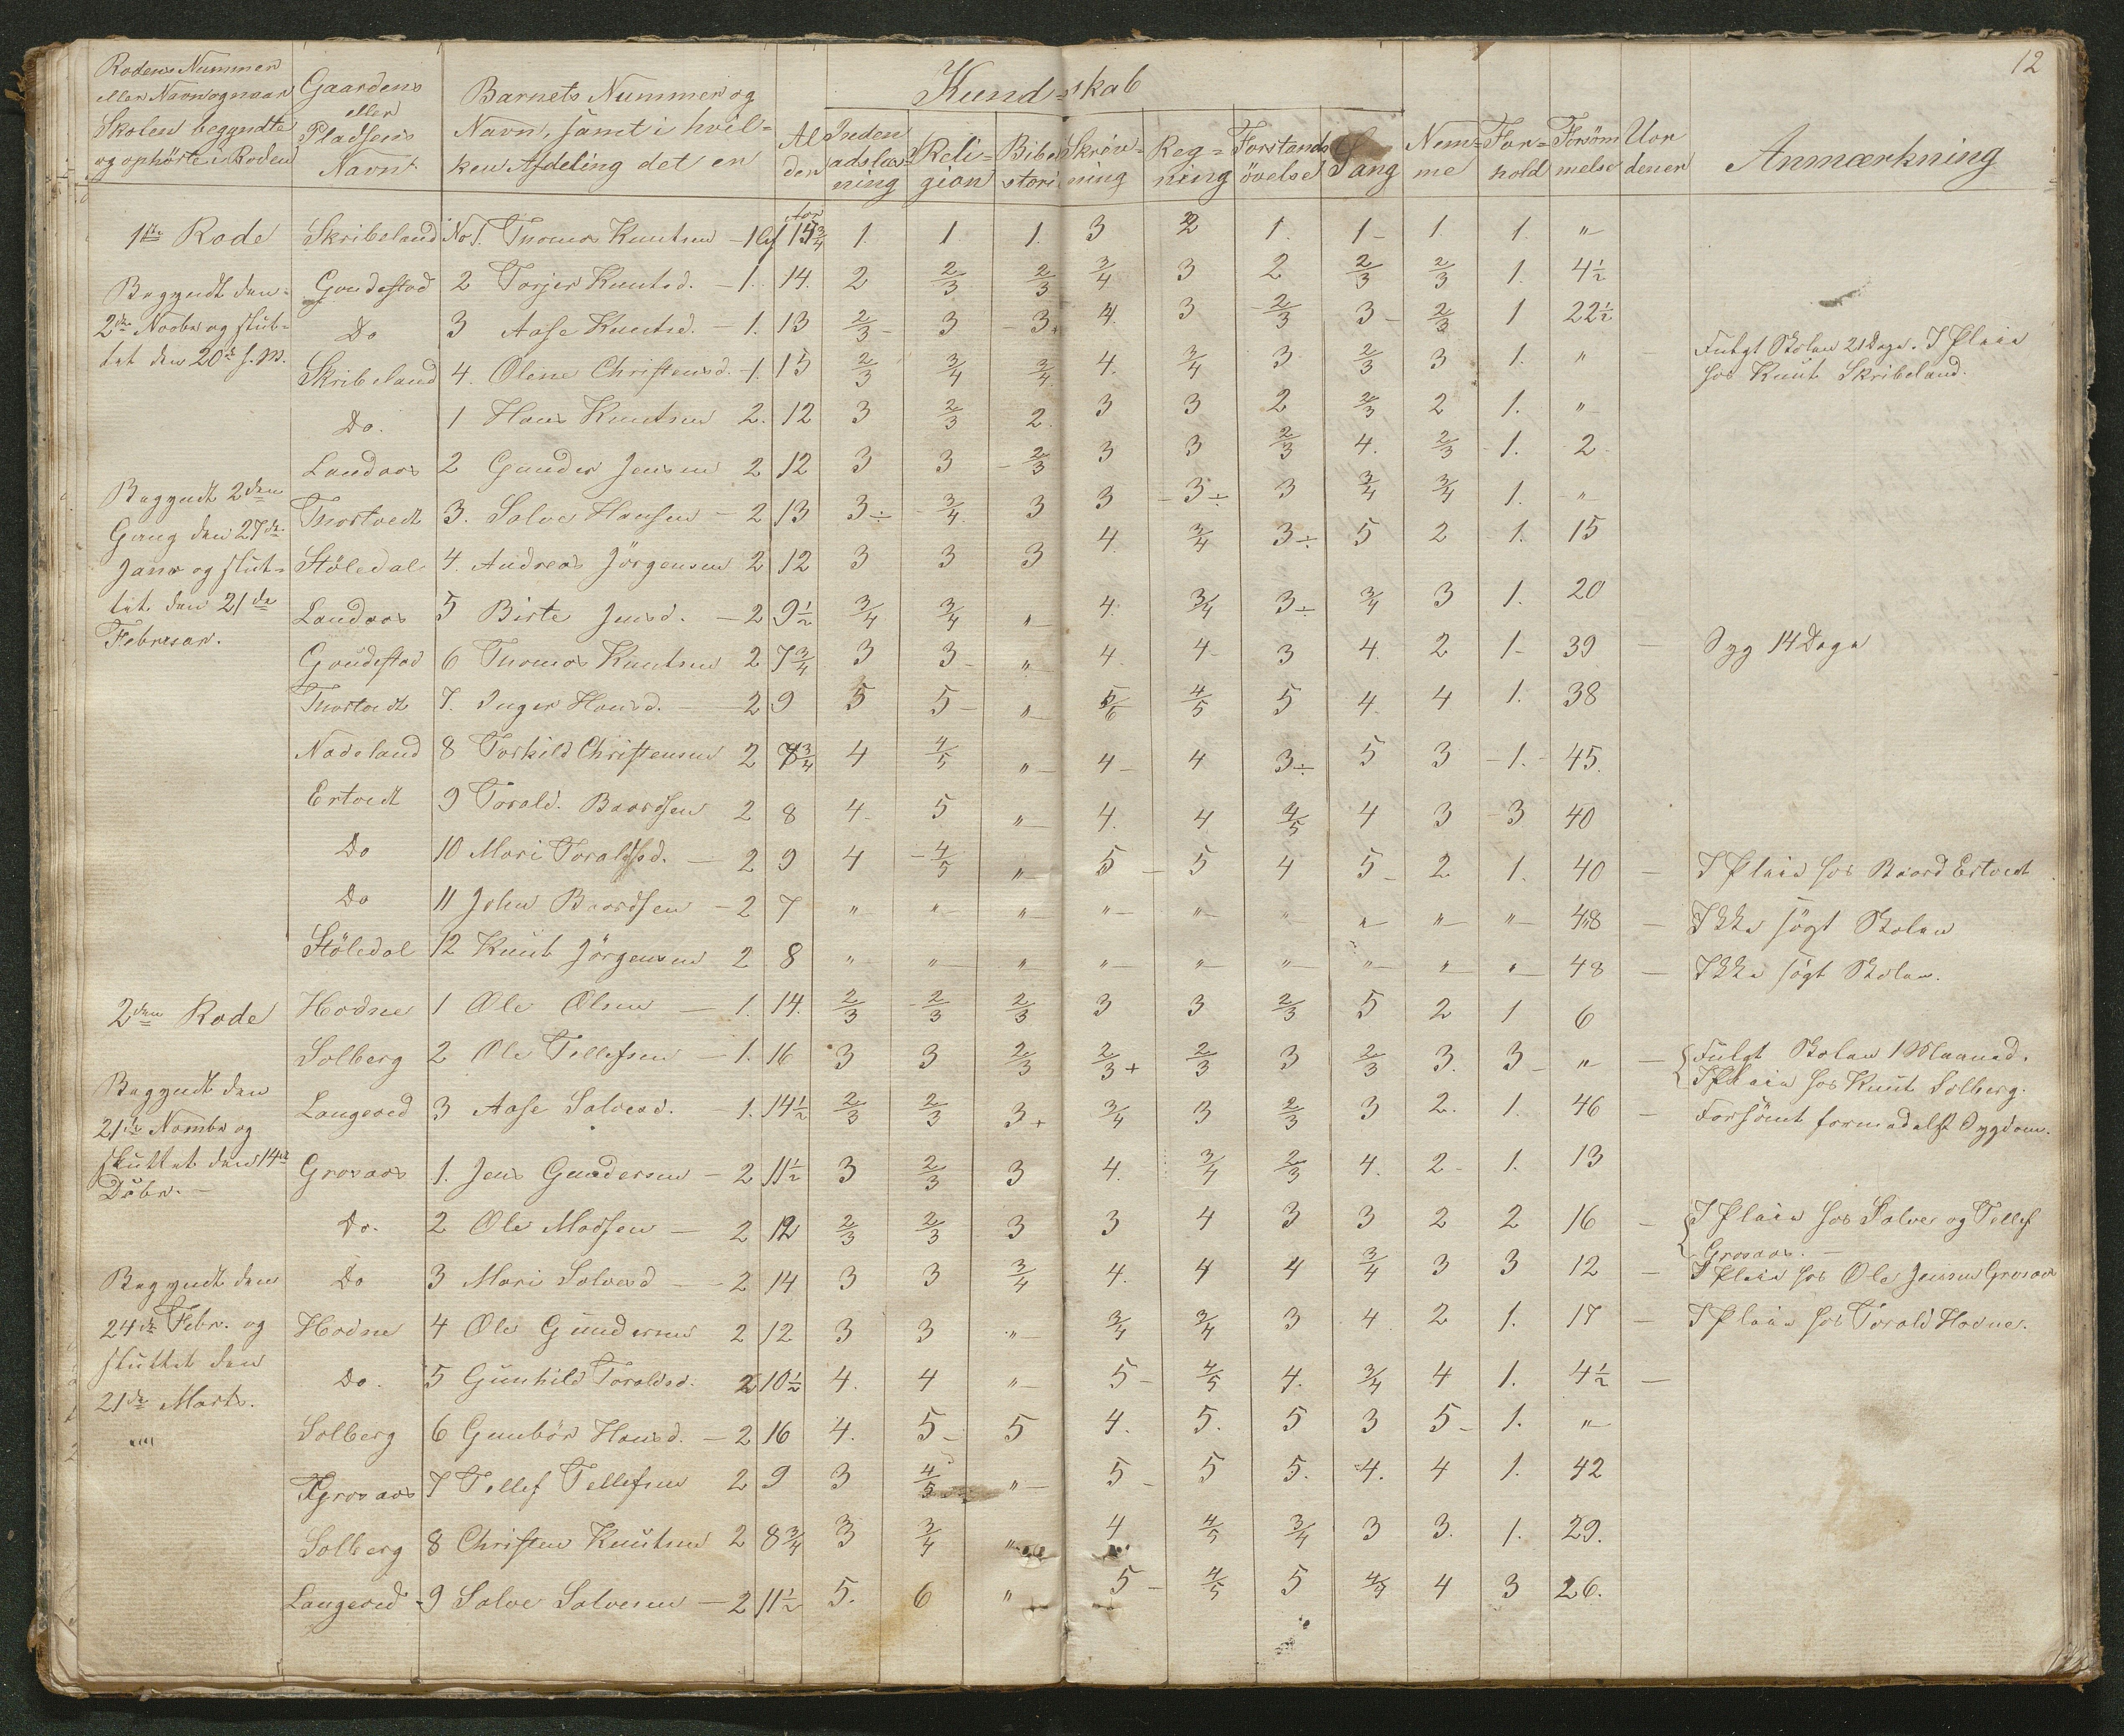 12
Rodens Nummer eller Navn og naar Skolen begyndte og ophörte i Roden | Gaardens eller Pladsens Navn | Barnets Nummer og Navn, samt i hvilken Afdeling det er | Alder | Kundskab: Indenadslæsning | Religion | Bibelhistorie | Skrivning | Regning | Forstandsövelse | Sang | Nemme | Forhold | Forsömmelse | Uordener | Anmærkning
1ste Rode
Begyndt den
2den Novbr og slut-
tet den 20de s. M.
Begyndt 2den
Gang den 27de
Janr og slut-
tet den 21de
Februar.
Skribeland No 1. Thomas Knutsen – 1 Af 15 3/4 1. 1. 1. 3 2 1. 1 – 1 1. "
Goudestad 2 Torjer Knutsd. – 1. 14. 2 2/3 2/3 3/4 3 2 2/3 2/3 1. 4½
Do 3 Aase Knutsd. – 1. 13 2/3 – 3 – 3+ 4. 3 2/3 3 – 2/3 1 22½
Skribeland 4. Olene Christensd. – 1. 15 2/3 3/4 3/4 4. 3/4 3 2/3 3 1. " – Fulgt Skolen 21 Dage. I Pleie
hos Knut Skribeland.
Do. 1 Hans Knutsen 2. 12 3 2/3 2. 3 3 2 2/3 2 1. "
Landaas 2 Gunder Jensen 2 12 3 3 – 2/3 3 3 2/3 4. 2/3 1. 2
Thortvedt 3. Salve Hansen – 2 13 3÷ 3/4 3 3 – 3÷ 3 3/4 3/4 1. "
Stöledal 4. Andreas Jörgensen 2 12 3 3 3 4. 3/4 3÷ 5 2 1. 15
Landaas 5 Birte Jensd. – 2 9½ 3/4 3/4 " 4. 3/4 3÷ 3/4 3 1. 20
Goudestad 6 Thomas Knutsen 2 7 3/4 3 3 – " 4. 4 3 4. 2 1 – 39 – Syg 14 Dage
Thortvedt 7. Inger Hansd. – 2 9 5 5 – " 5/6 4/5 5 4 4 1. 38
Nadeland 8 Torkild Christensen 2 8 3/4 4 4/5 " 4 – 4 3÷ 5 3 – 1. – 45.
Ertvedt 9 Torald. Baardsen 2 8 4 – 5 " 4. 4 4/5 4 3 3 40
Do 10 Mari Toraldsd. – 2 9 4 – 4/5 " 5 – 5 4 5 – 2 1. 40 – I Pleie hos Baard Ertvedt
Do 11 John Baardsen – 2 7 " " " " " " " " " 48 – Ikke sögt Skolen
Stöledal 12 Knut Jörgensen 2 8 " " " " " " " " " 48 – Ikke sögt Skolen.
2den Rode
Begyndt den
21de Novmbr og
sluttet den 14de
Dsbr. –
Begyndt den
24de Febr. og
sluttet den
21de Marts.
Hodne 1 Ole Olsen – 1. 14. 2/3 2/3 2/3 3 3 2/3 5 2 1 6
Solberg 2 Ole Tellefsen – 1. 16 3 3 2/3 2/3+ 2/3 3 2/3 3. 3 – " – Fulgt Skolen 1 Maaned.
I Pleie hos Knut Solberg.
Langeved 3 Aase Salvesd. – 1. 14½ 2/3 2/3 3+ 3/4 3 2/3 3 2. 1. 46 – Forsömt formedelst Sygdom.
Grosaas 1. Jens Gundersen – 2 11½ 3 2/3 3 4. 3/4 2/3 4. 2 – 1. 13
Do. 2 Ole Madsen – 2 12 2/3 2/3 3 3 4 3 3 2 2 16 – I Pleie hos Salve og Tellef
Grosaas. –
Do 3 Mari Salvesd – 2 14 3 3 3/4 4. 4 4 3/4 3 3 12 – I Pleie hos Ole Jensen Grosaas
Hodne 4 Ole Gundersen 2 12 3 3 " 3/4 3/4 3 4 2 1. 17 – I Pleie hos Torald Hodne.
Do. 5 Gunhild Toraldsd. 2 10½ 4. 4 " 5 – 4/5 4. 3/4 4 1. 4½ –
Solberg 6 Gunbör Hansd. – 2 16 4. 5 – 5 4. 5. 5 3 5 – 1. "
Grosaas 7 Tellef Tellefsen 2 9 3 4/5 " 5 – 5 5. 4. 4 1. 42
Solberg 8 Christen Knutsen 2 8 3/4 3 3/4 " 4 4/5 3/4 3 3. 1. 29.
Langeved 9 Salve Salvesen – 2 11½ 5. 6 " 5 – 4/5 5 4/5 4 3 26.